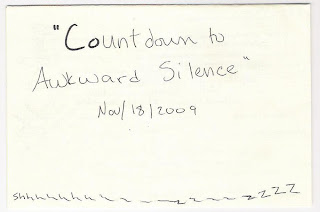 "Countdown to
Awkward Silence"
Nov/18/2009
shhhhhhhh~~~~zzzZZZZ